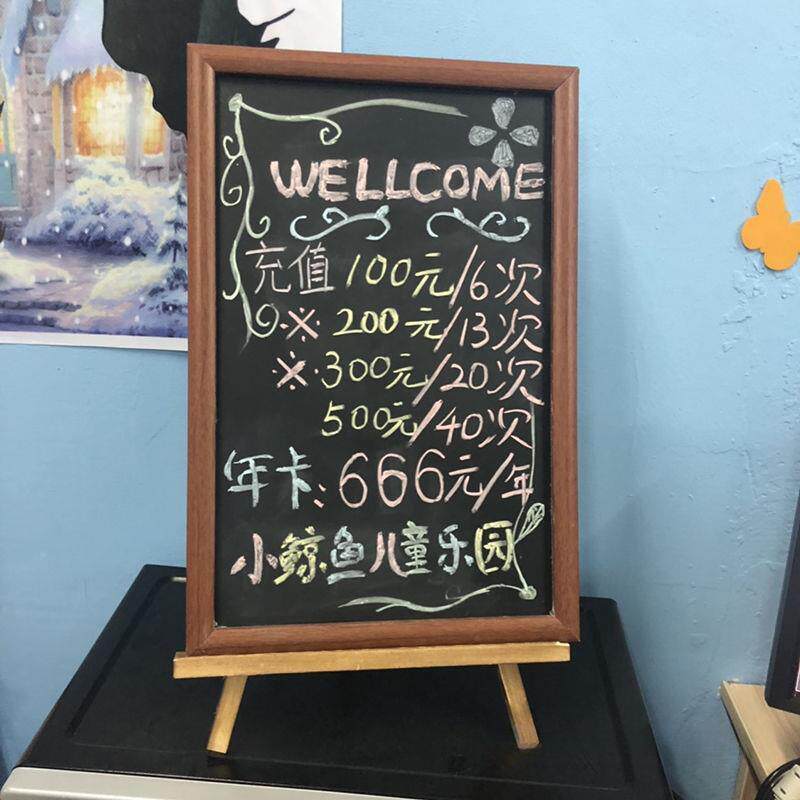 WELLCOME
充值100元/6次
※200元/13次
※300元/20次
500元/40次
年卡:666元/年
小鲸鱼儿童乐园